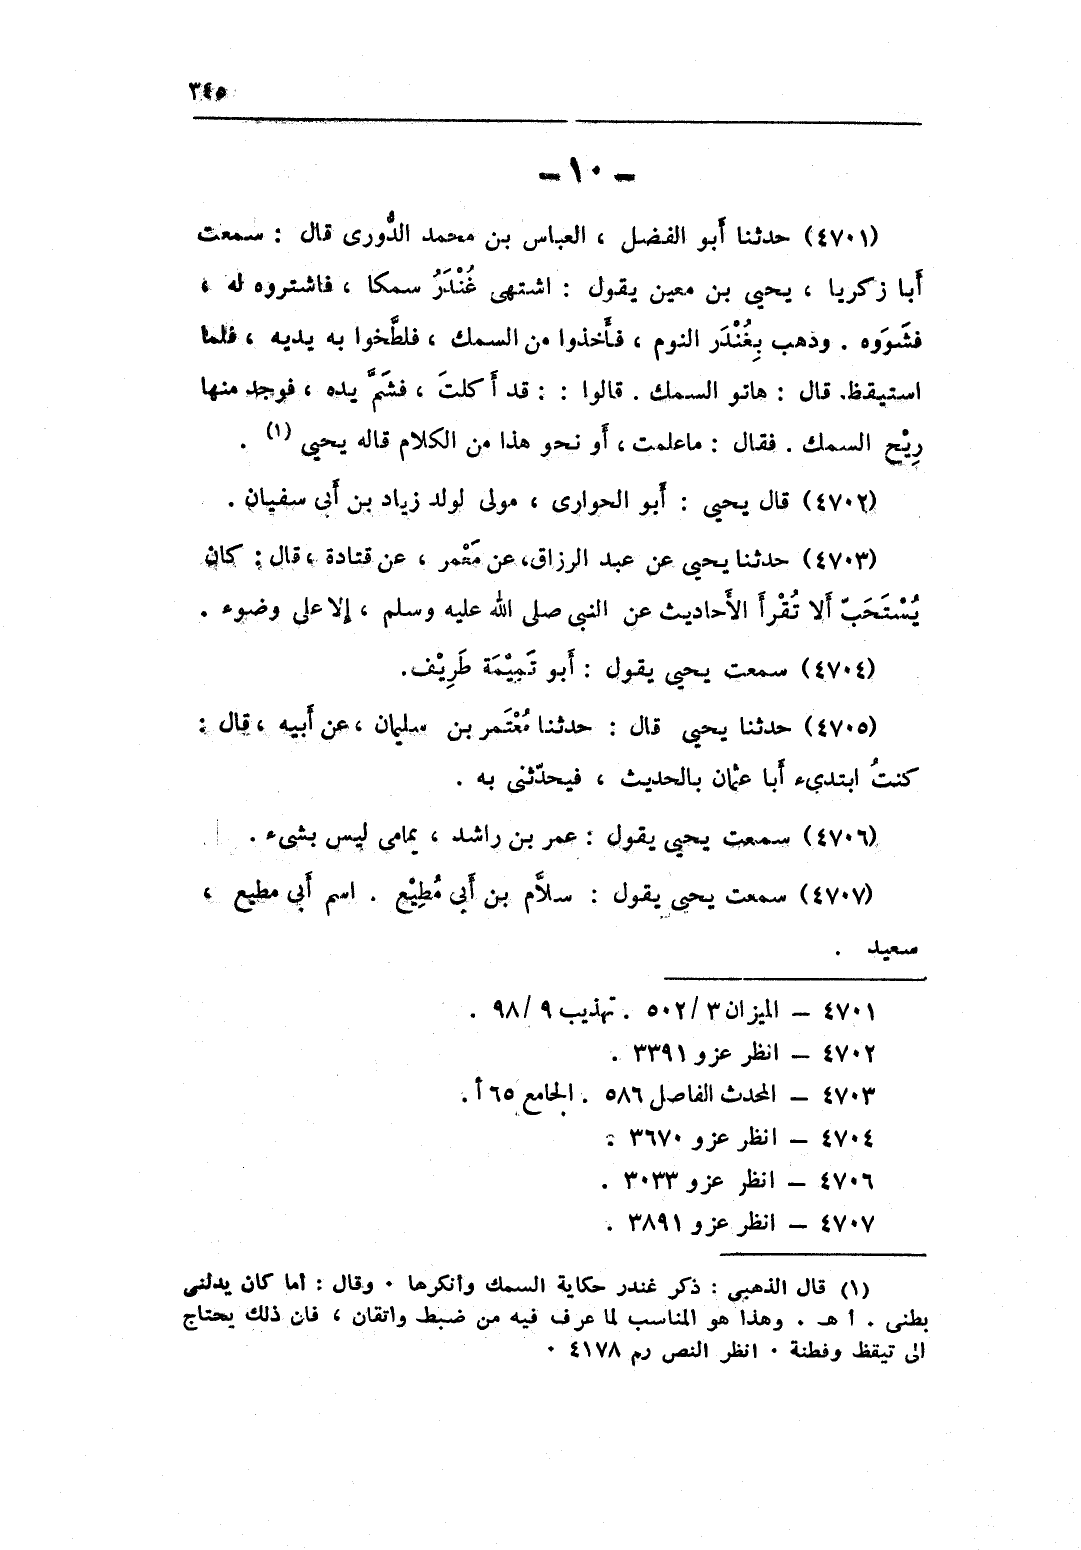 ٣٤٥
– ١٠ –
(٤٧٠١) حدثنا أبو الفضل ، العباس بن محمد الدُّورى قال : سمعت
أبا زكريا ، يحيي بن معين يقول : اشتهى غُنْدَرُ سمكا ، فاشتروه له ،
فشَوَوه . وذهب بِغُنْدَر النوم ، فأخذوا من السمك ، فلطَّخوا به يديه ، فلما
استيقظ. قال : هاتو السمك . قالوا : : قد أكلتَ ، فشمَّ يده ، فوجد منها
رِيْح السمك . فقال : ماعلمت ، أو نحو هذا من الكلام قاله يحيي (١) .
(٤٧٠٢) قال يحيي : أبو الحوارى ، مولى لولد زياد بن أبى سفيان .
(٤٧٠٣) حدثنا يحيي عن عبد الرزاق، عن مَعْمر ، عن قتادة ، قال : كان
يُسْتَحَبّ ألا تُقْرأَ الأحاديث عن النبى صلى الله عليه وسلم ، إلا على وضوء .
(٤٧٠٤) سمعت يحيي يقول : أبو تَمِيْمَة طَرِيْف.
(٤٧٠٥) حدثنا يحيي قال : حدثنا مُعْتَمر بن سليمان ، عن أبيه ، قال :
كنتُ ابتدىء أبا عثمان بالحديث ، فيحدّثنى به .
(٤٧٠٦) سمعت يحيي يقول : عمر بن راشد ، يمامى ليس بشىء .
(٤٧٠٧) سمعت يحيي يقول : سلاَّم بن أبي مُطِيْع . اسم أبي مطيع ،
سعيد .
٤٧٠١ – الميزان ٣/ ٥٠٢ . تهذيب ٩/ ٩٨ .
٤٧٠٢ – انظر عزو ٣٣٩١ .
٤٧٠٣ – المحدث الفاصل ٥٨٦ . الجامع ٦٥ أ .
٤٧٠٤ – انظر عزو ٣٦٧٠ .
٤٧٠٦ – انظر عزو ٣٠٣٣ .
٤٧٠٧ – انظر عزو ٣٨٩١ .
(١) قال الذهبي : ذكر غندر حكاية السمك وأنكرها ٠ وقال : أما كان يدلنى
بطنى . أ هـ . وهذا هو المناسب لما عرف فيه من ضبط واتقان ، فان ذلك يحتاج
الى تيقظ وفطنة ٠ انظر النص رم ٤١٧٨ ٠